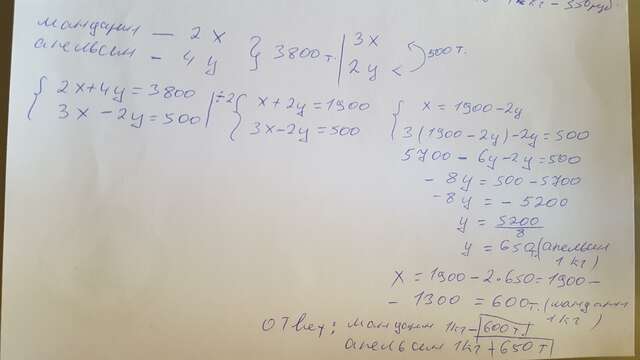 1 кг - 550 руб.
мандарин — 2 x } 3800 т. | 3x
апельсин - 4 y | 2y < 500 т.
{ 2x+4y=3800 |÷2
3x-2y=500
{ x+2y=1900
3x-2y=500
{ x=1900-2y
3(1900-2y)-2y=500
5700-6y-2y=500
-8y=500-5700
-8y=-5200
y=5200/8
y=650т.(апельсин
1 кг)
x=1900-2•650=1900-
-1300=600т.(мандарин
1 кг)
Ответ: мандарин 1кг-600 т.
апельсин 1кг-650 т.